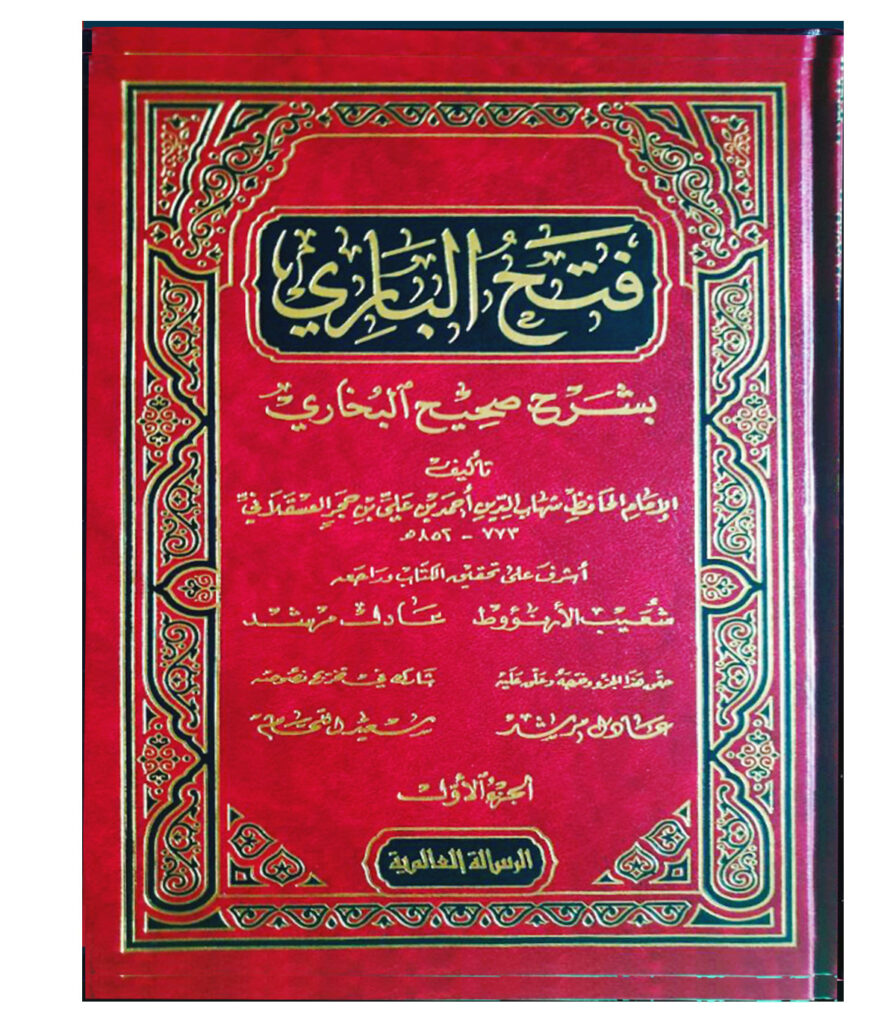 فَتْحُ البَارِي
بشرح صحيح البخاري
تأليف
الإمام الحافظ شهاب الدين أحمد بن علي بن حجر العسقلاني
٧٧٣ - ٨٥٢ هـ
أشرف على تحقيق الكتاب وراجعه
شعيب الأرنؤوط عادل مرشد
حقق هذا الجزء وخرجه وعلق عليه شارك في تخريج نصوصه
عادل مرشد سعيد اللحام
الجزء الأول
الرسالة العالمية